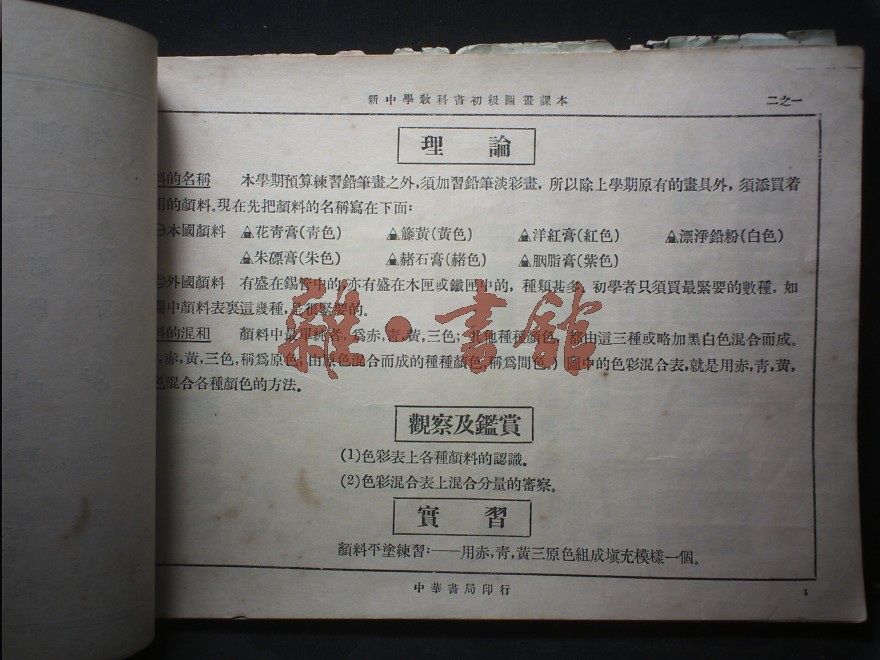 新中學教科書初級圖畫課本
二之一
理 論
料的名稱 本學期預算練習鉛筆畫之外,須加習鉛筆淡彩畫,所以除上學期原有的畫具外,須添買着
用的顏料。現在先把顏料的名稱寫在下面:
㊀本國顏料 花青膏(青色) 籐黃(黃色) 洋紅膏(紅色) 漂淨鉛粉(白色)
朱磦膏(朱色) 赭石膏(赭色) 胭脂膏(紫色)
㊁外國顏料 有盛在錫管中的,亦有盛在木匣或鐵匣中的,種類甚多,初學者只須買最緊要的數種,如
圖中顏料表裏這幾種,是很緊要的。
料的混和 顏料中最單純者,爲赤,青,黃,三色;其他種種顏色,都由這三種或略加黑白色混合而成。
,赤,黃,三色,稱爲原色,由原色混合而成的種種顏色,稱爲間色。)圖中的色彩混合表,就是用赤,青,黃,
色混合各種顏色的方法。
觀察及鑑賞
(1)色彩表上各種顏料的認識。
(2)色彩混合表上混合分量的審察。
實 習
顏料平塗練習:——用赤,青,黃三原色組成塡充模樣一個。
中華書局印行
1
雜·書館